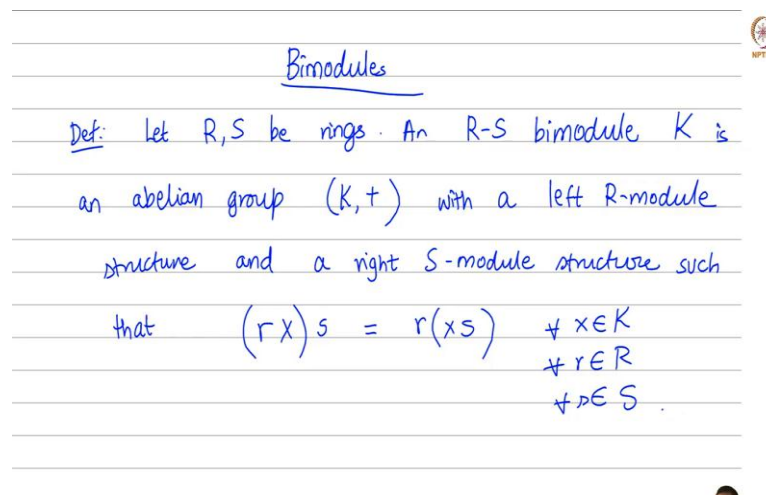 Bimodules
Def: Let R, S be rings. An R-S bimodule K is
an abelian group (K, +) with a left R-module
structure and a right S-module structure such
that (rx)s = r(xs) ∀ x∈K
∀ r∈R
∀ s∈ S.
NPT